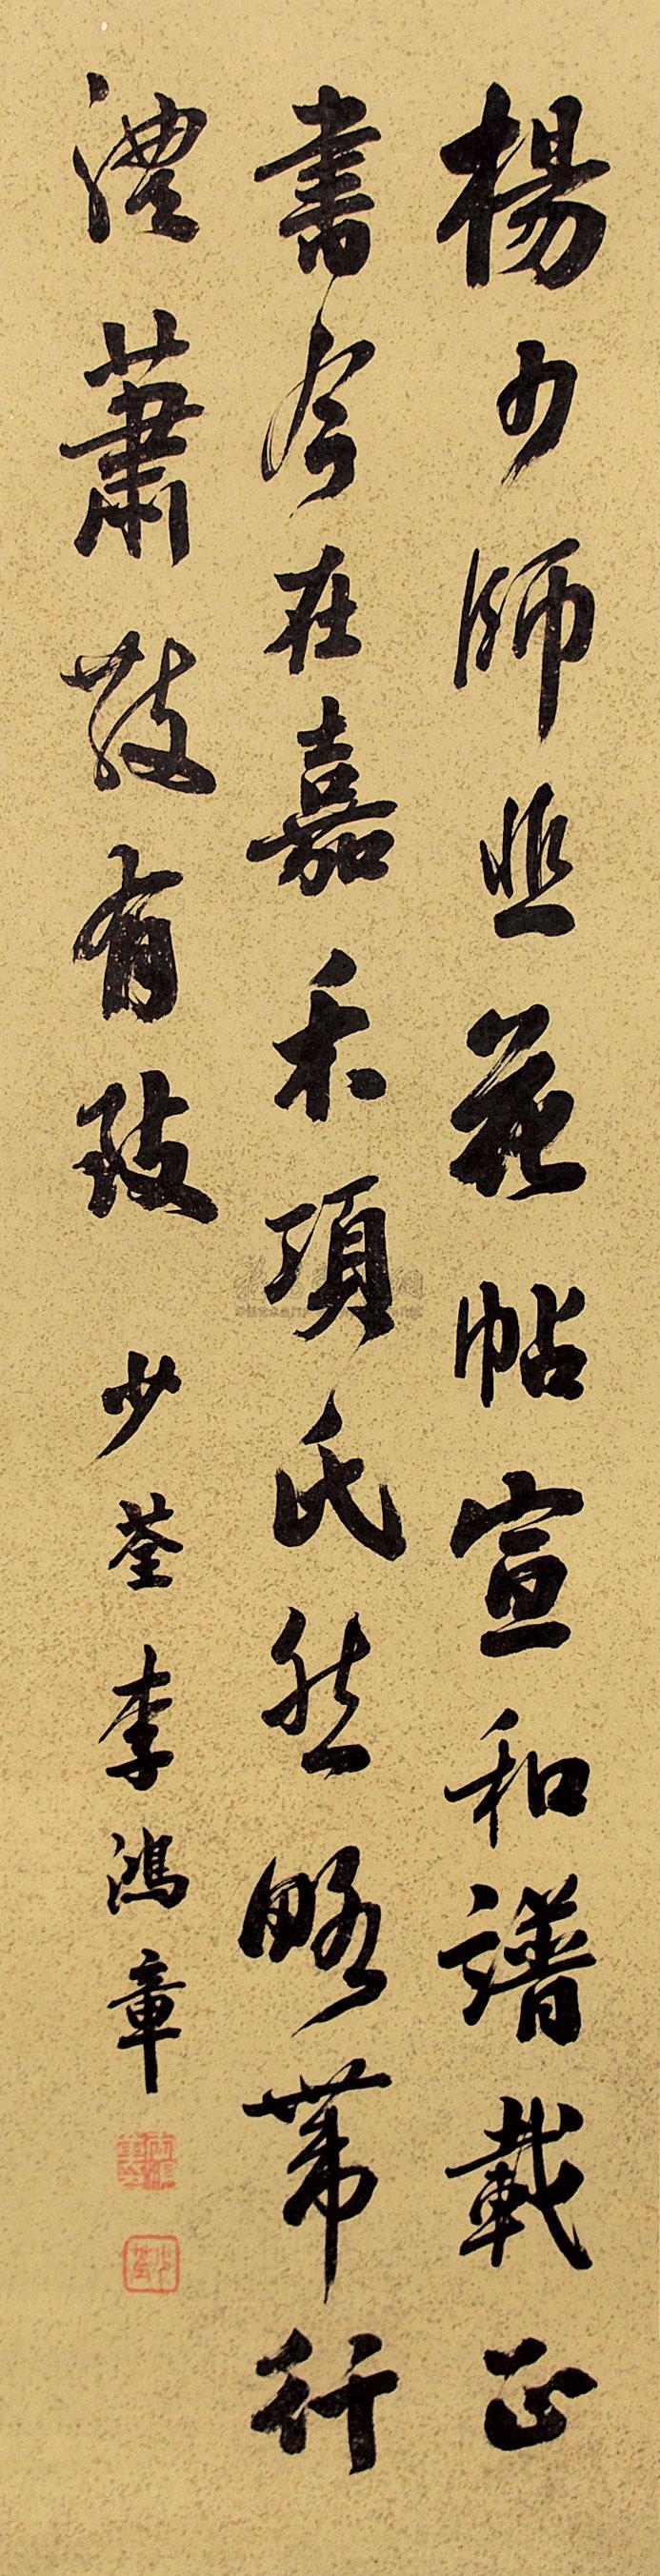 楊少師韭花帖宣和譜載正
書今在嘉禾項氏然略帶行
澧蕭散有致
少荃李鴻章